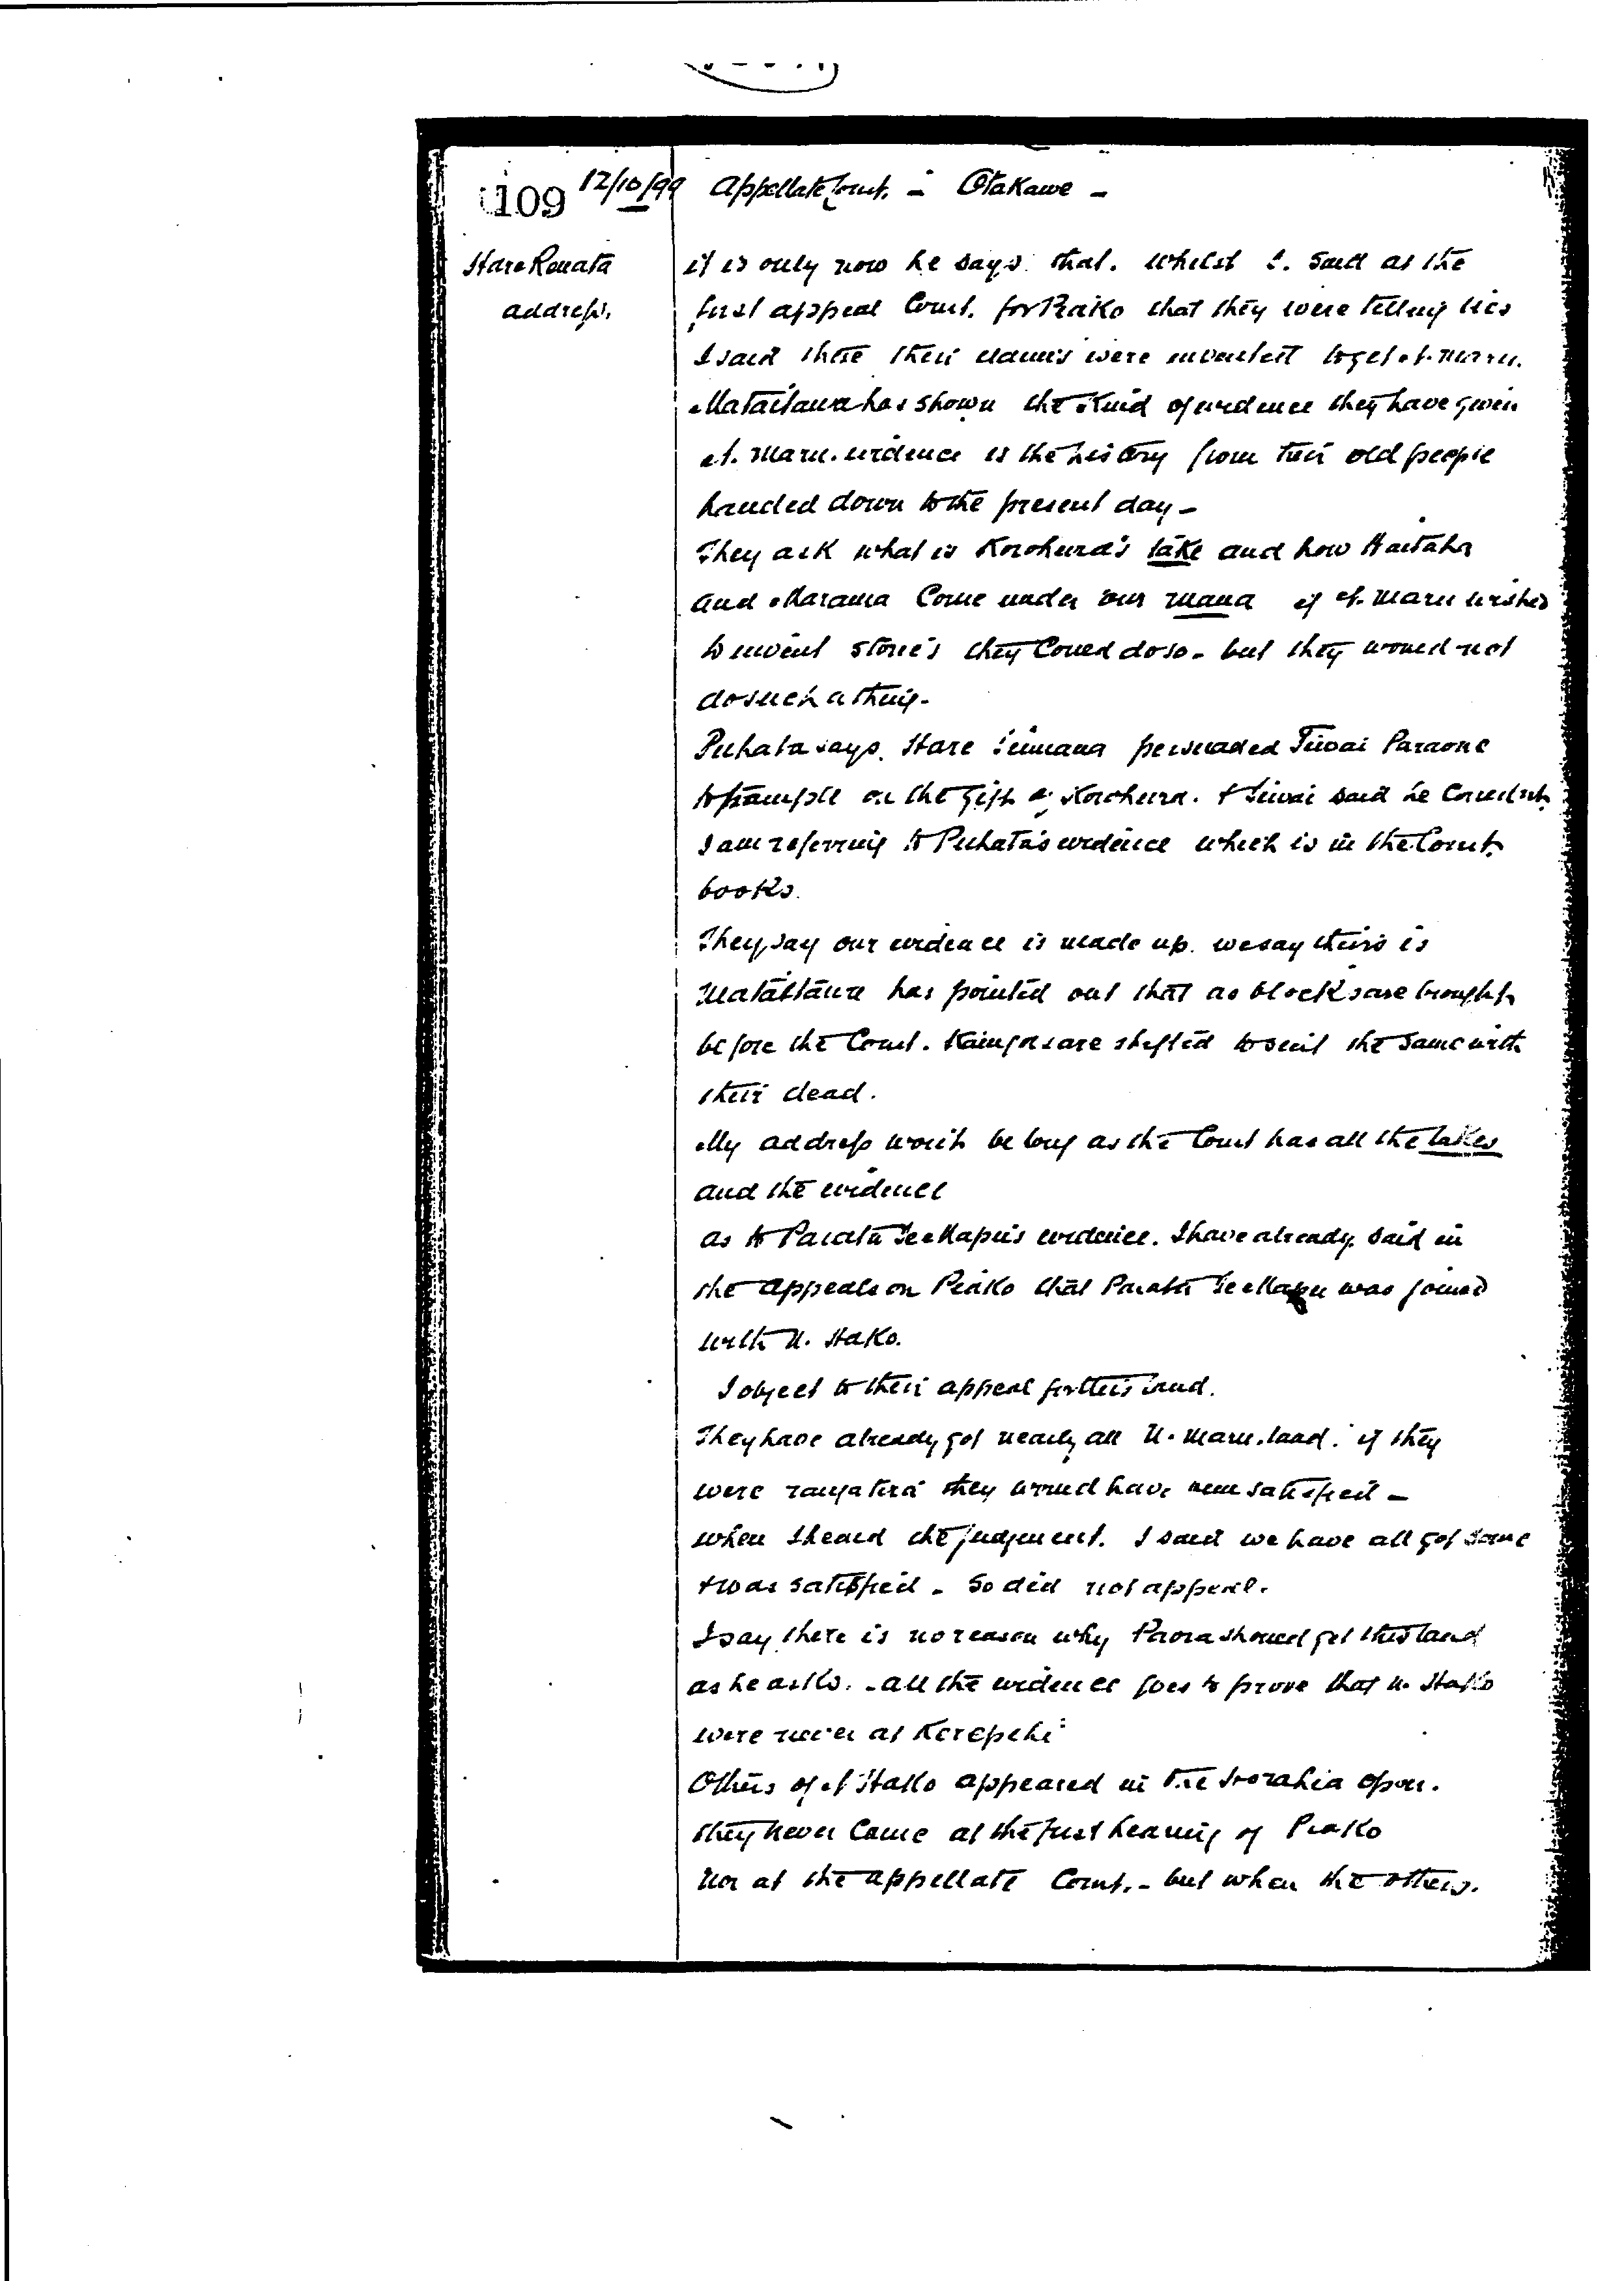 109 12/10/99 Appellate Court. - Otakawe -
Hare Renata
address.
it is only now he says that. Whilst I. said at the
first appeal Court. for Piako that they were telling lies
I said there their claims were invented to get N. Maru.
Mataitaua has shown the kind of evidence they have given
N. Maru. evidence is the history from their old people
handed down to the present day -
They ask what is Korohura's take and how Waitaha
and Marama Come under our mana if N. Maru wished
to invent stories they Could do so - but they would not
do such a thing -
Puhata says. Hare Teimana persuaded Tiwai Paraone
to trample on the gift of Korohura. & Tiwai said he Could not
I am referring to Puhata's evidence which is in the Court
books.
They say our evidence is made up. we say theirs is
Mataitaua has pointed out that as blocks are brought
before the Court. Kaingas are shifted to suit the same with
their dead.
My address won't be long as the Court has all the takes
and the evidence
as to Parata Te Mapu's evidence. I have already said in
the appeals on Piako that Parata Te Mapu was joined
with N. Hako.
I object to their appeal for this land.
They have already got nearly all N. Maru. land. if they
were rangatira they would have been satisfied -
when I heard the judgment. I said we have all got some
& was satisfied - So did not appeal.
I say there is no reason why Paora should get this land
as he asks. - all the evidence goes to prove that N. Hako
were never at Kerepehi
Others of N Hako appeared in the Horahia Opou.
they never Came at the first hearing of Piako
Nor at the appellate Court. - but when the others.